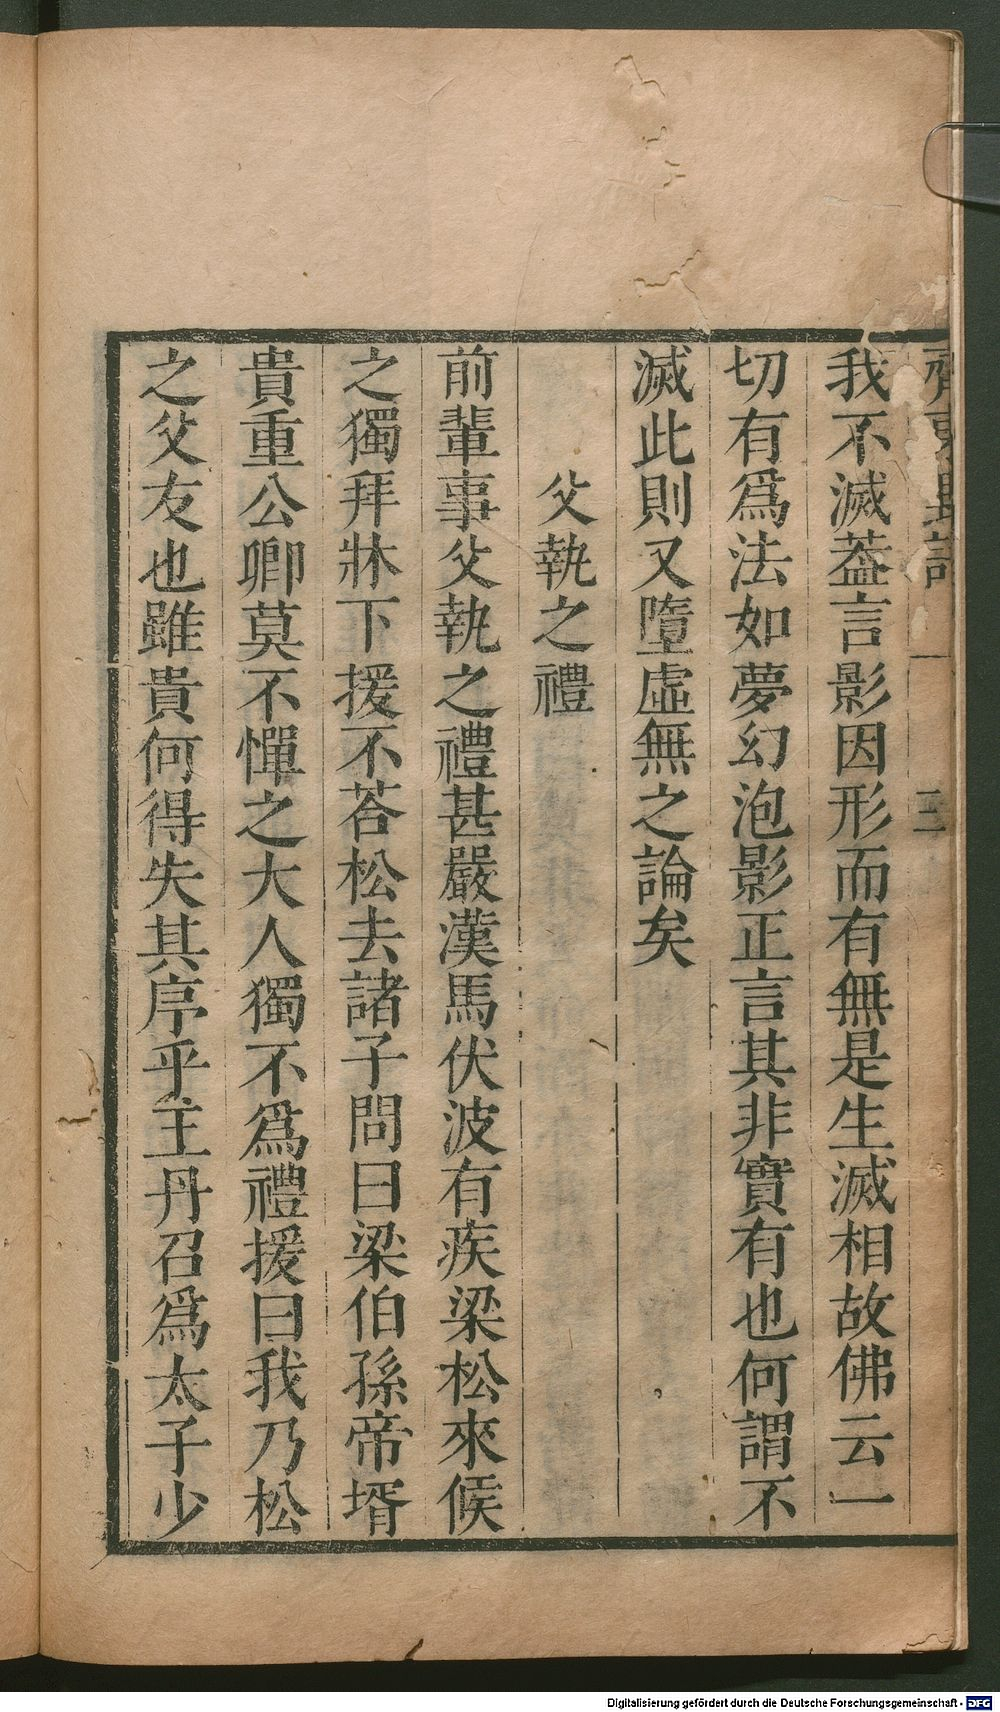 我不滅葢言影因形而有無是生滅相故佛云一
切有爲法如夢幻泡影正言其非實有也何謂不
滅此則又墮虛無之論矣
父執之禮
前輩事父執之禮甚嚴漢馬伏波有疾梁松來候
之獨拜牀下援不荅松去諸子問曰梁伯孫帝壻
貴重公卿莫不憚之大人獨不爲禮援曰我乃松
之父友也雖貴何得失其序乎王丹召爲太子少
一
三
Digitalisierung gefördert durch die Deutsche Forschungsgemeinschaft - DFG